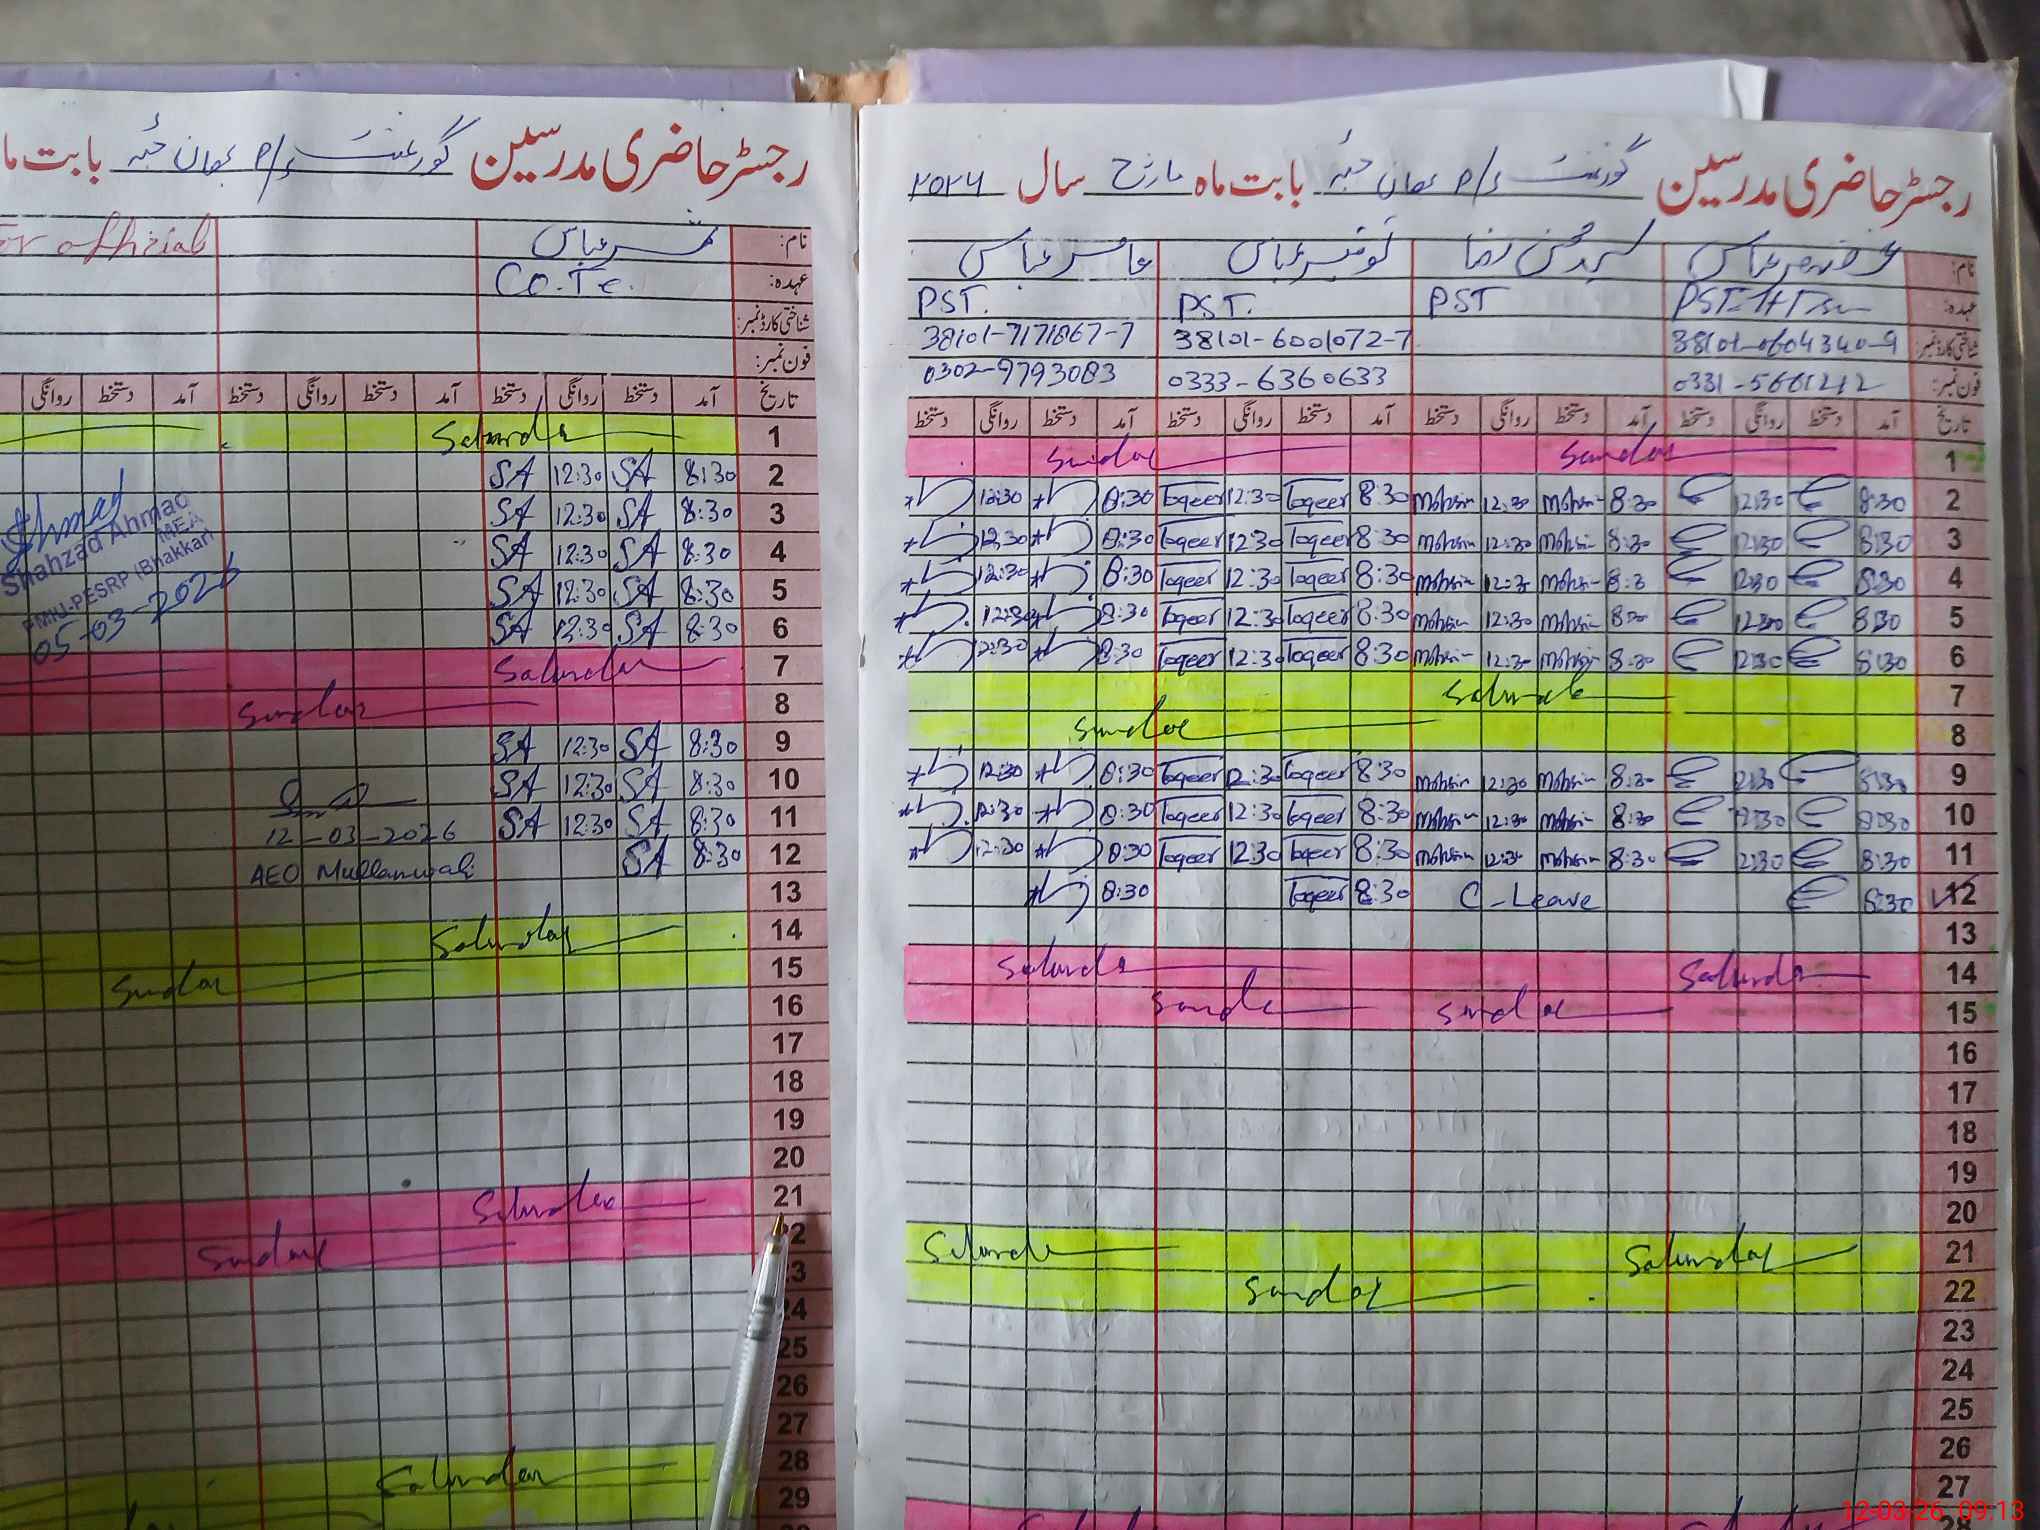 رجسٹر حاضری مدرسین گورنمنٹ ء/م عمان جبہ بابت ما
For official
نام: عباس
عہدہ: Co.Te.
شناختی کارڈ نمبر:
فون نمبر:
تاریخ آمد دستخط روانگی دستخط آمد دستخط روانگی دستخط آمد دستخط روانگی
1 Saturda
2 8:30 SA 12:30 SA
3 8:30 SA 12:30 SA
4 8:30 SA 12:30 SA
5 8:30 SA 12:30 SA
6 8:30 SA 12:30 SA
Ahmad
Shahzad Ahmad
MEA
PMIU-PESRP (Bhakkar)
05-03-2026
7 Saturday
8 Sunday
9 8:30 SA 12:30 SA
10 8:30 SA 12:30 SA
11 8:30 SA 12:30 SA
12 8:30 SA
12-03-2026
AEO Mullanwali
13
14 Saturday
15 Sunday
16
17
18
19
20
21 Saturday
22 Sunday
23
24
25
26
27
28 Saturday
29
رجسٹر حاضری مدرسین گورنمنٹ ء/م عمان جبہ بابت ماہ مارچ سال ۲۰۲۶
نام: عباس سید محسن رضا توقیر عباس عامر عباس
عہدہ: PST PST. PST.
شناختی کارڈ نمبر: 38101-0604340-9 38101-6001072-7 38101-7171867-7
فون نمبر: 0331-5661212 0333-6360633 0302-9793083
تاریخ آمد دستخط روانگی دستخط آمد دستخط روانگی دستخط آمد دستخط روانگی دستخط آمد دستخط روانگی دستخط
1 Sunday Sunday
2 8:30 12:30 8:30 Mohsin 12:30 Mohsin 8:30 Toqeer 12:30 Toqeer 8:30 12:30
3 8:30 12:30 8:30 Mohsin 12:30 Mohsin 8:30 Toqeer 12:30 Toqeer 8:30 12:30
4 8:30 12:30 8:30 Mohsin 12:30 Mohsin 8:30 Toqeer 12:30 Toqeer 8:30 12:30
5 8:30 12:30 8:30 Mohsin 12:30 Mohsin 8:30 Toqeer 12:30 Toqeer 8:30 12:30
6 8:30 12:30 8:30 Mohsin 12:30 Mohsin 8:30 Toqeer 12:30 Toqeer 8:30 12:30
7 Saturda
8 Sunday
9 8:30 12:30 8:30 Mohsin 12:30 Mohsin 8:30 Toqeer 12:30 Toqeer 8:30 12:30
10 8:30 12:30 8:30 Mohsin 12:30 Mohsin 8:30 Toqeer 12:30 Toqeer 8:30 12:30
11 8:30 12:30 8:30 Mohsin 12:30 Mohsin 8:30 Toqeer 12:30 Toqeer 8:30 12:30
12 8:30 C-Leave 8:30 Toqeer 8:30
13
14 Saturda Saturda
15 Sunday Sunda
16
17
18
19
20
21 Saturday Saturda
22 Sunday
23
24
25
26
27
28
12-03-26 09:13